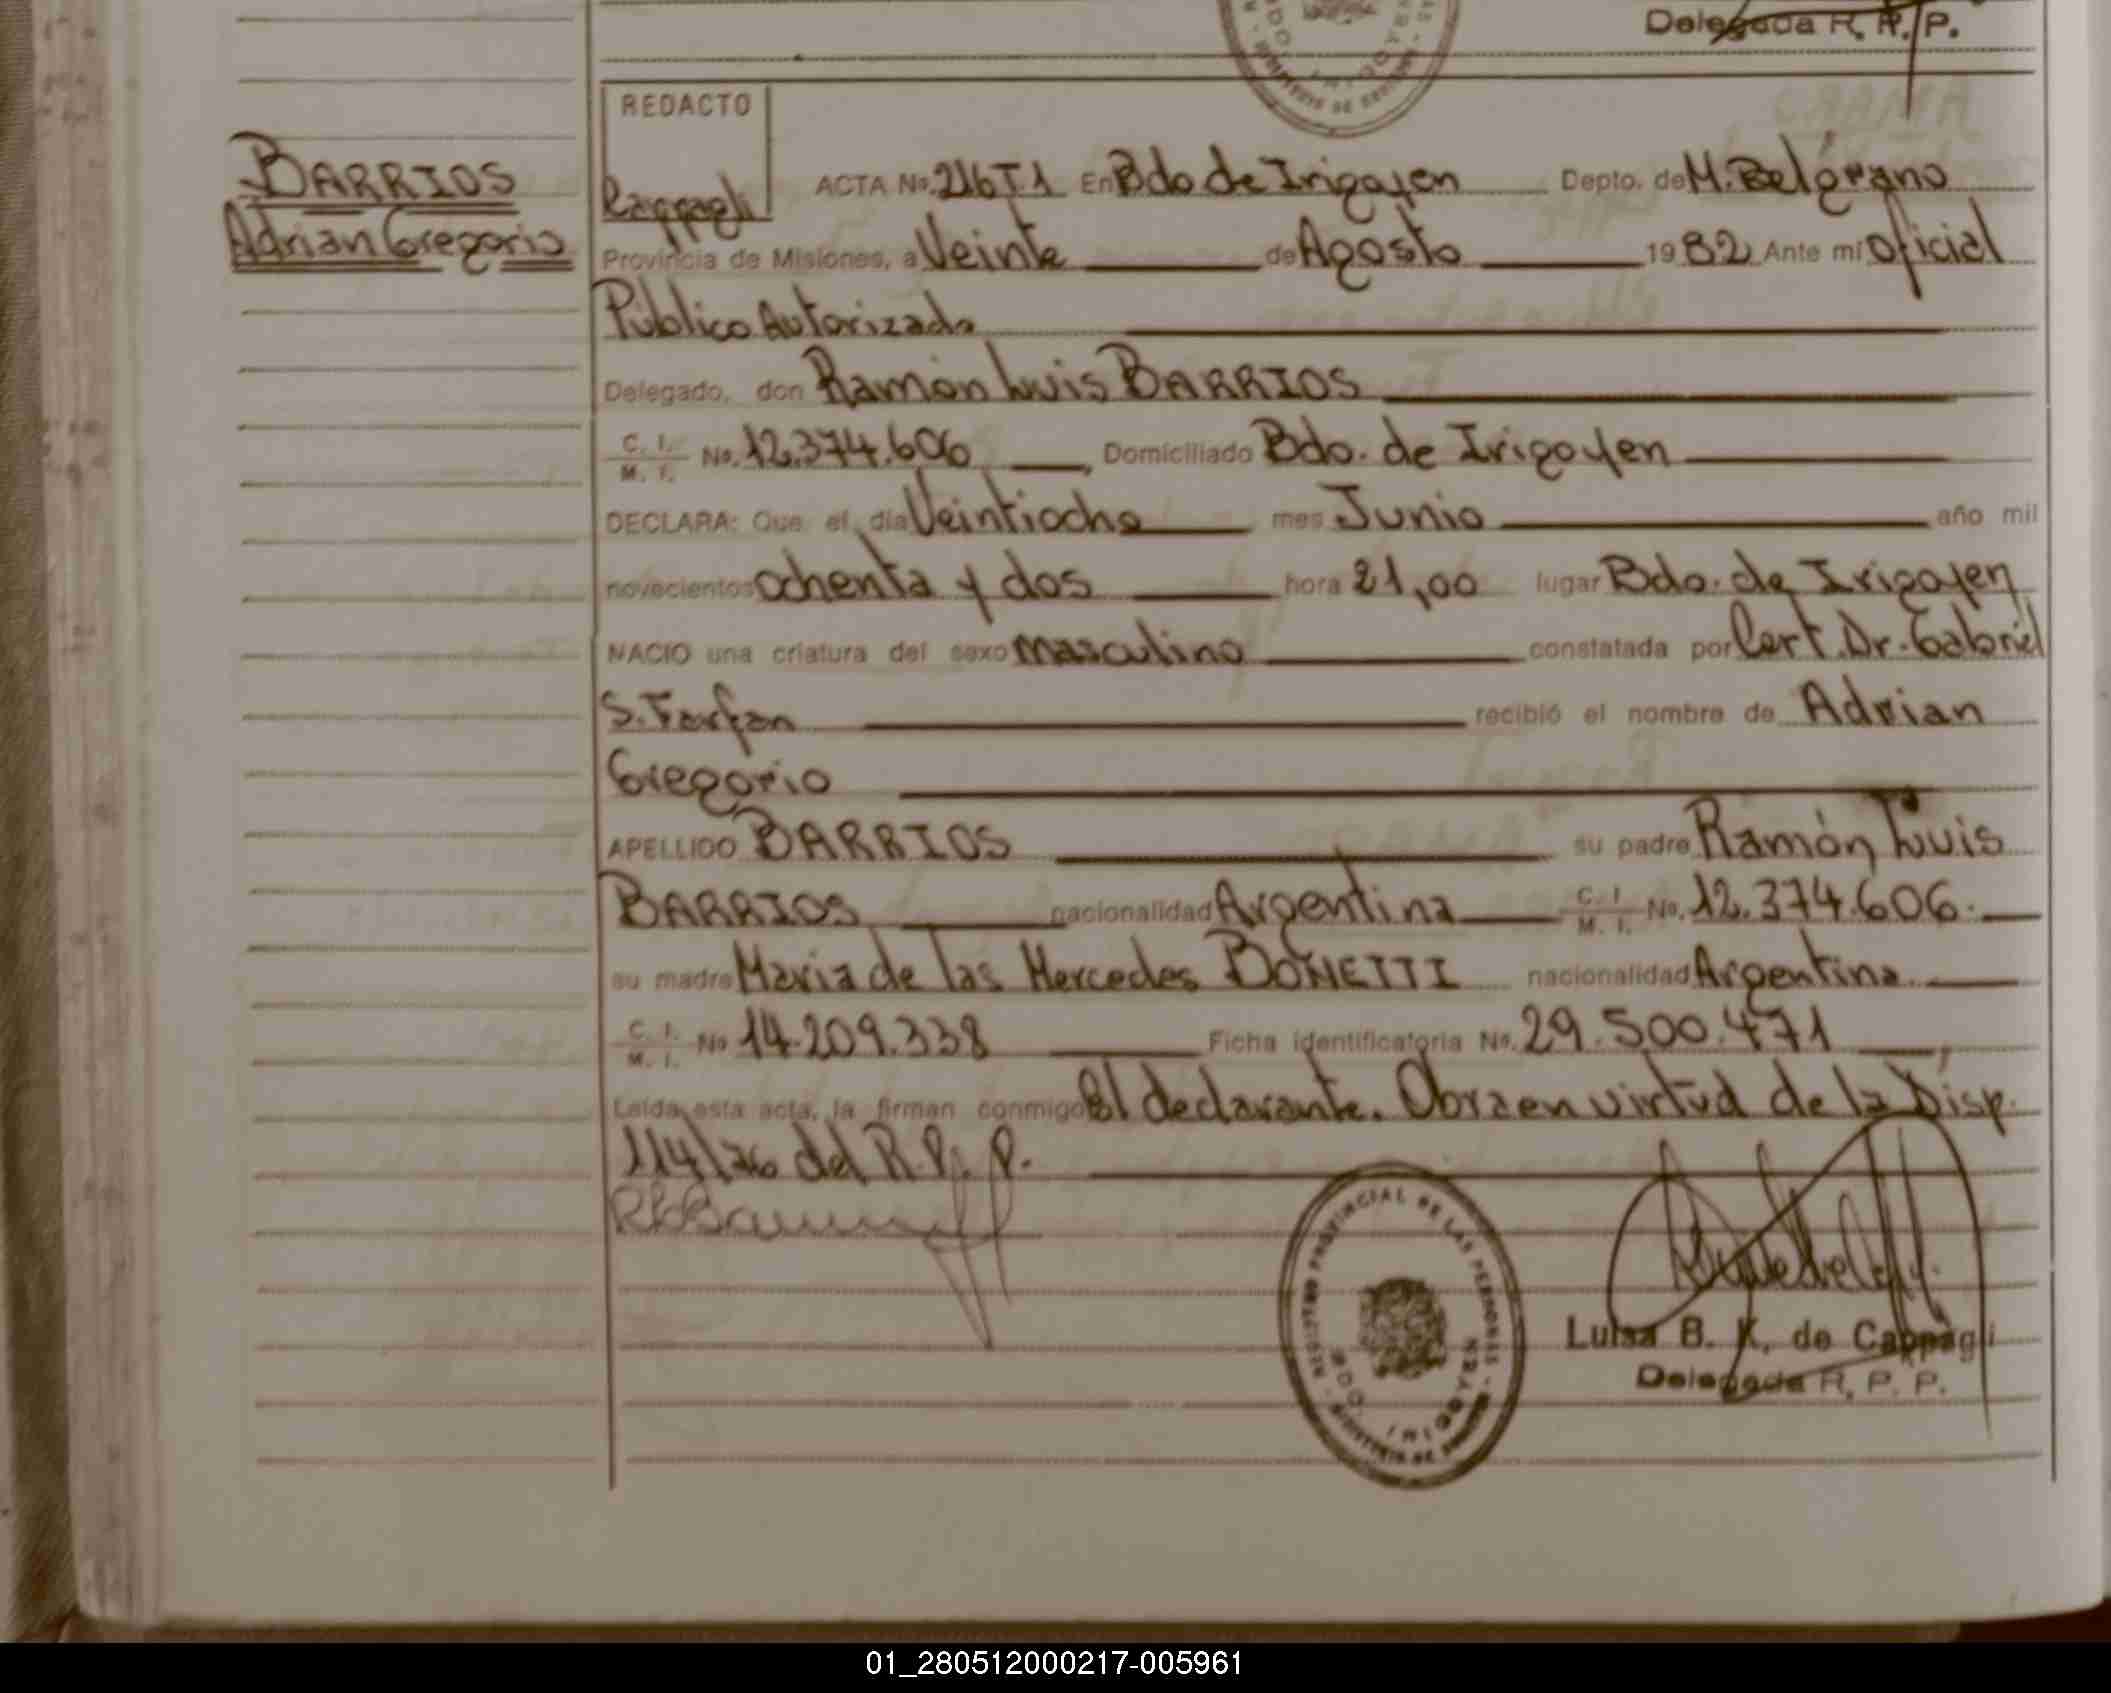 Delegada R. R. P.
REDACTO
BARRIOS
Adrian Gregorio
Cappagli
ACTA No. 216 T1 En Bdo de Irigoyen Depto. de M. Belgrano
Provincia de Misiones, a Veinte de Agosto 1982 Ante mí oficial
Público Autorizado
Delegado, don Ramón Luis BARRIOS
C. I. M. I. No. 12.374.606, Domiciliado Bdo. de Irigoyen
DECLARA: Que el día Veintiocho mes Junio año mil
novecientos ochenta y dos hora 21,00 lugar Bdo. de Irigoyen
NACIO una criatura del sexo masculino constatada por Cert. Dr. Gabriel
S. Farfan recibió el nombre de Adrian
Gregorio
APELLIDO BARRIOS su padre Ramón Luis
BARRIOS nacionalidad Argentina C. I. M. I. No. 12.374.606.
su madre Maria de las Mercedes DONETTI nacionalidad Argentina
C. I. M. I. No 14.209.338 Ficha identificatoria No. 29.500.471,
Leída esta acta, la firman conmigo el declarante. Obra en virtud de la Disp.
114/ del R. P. P.
REGISTRO PROVINCIAL DE LAS PERSONAS - MINISTERIO DE
BDO. IRIGOYEN
Luisa B. K. de Cappagli
Delegada R. P. P.
01_280512000217-005961